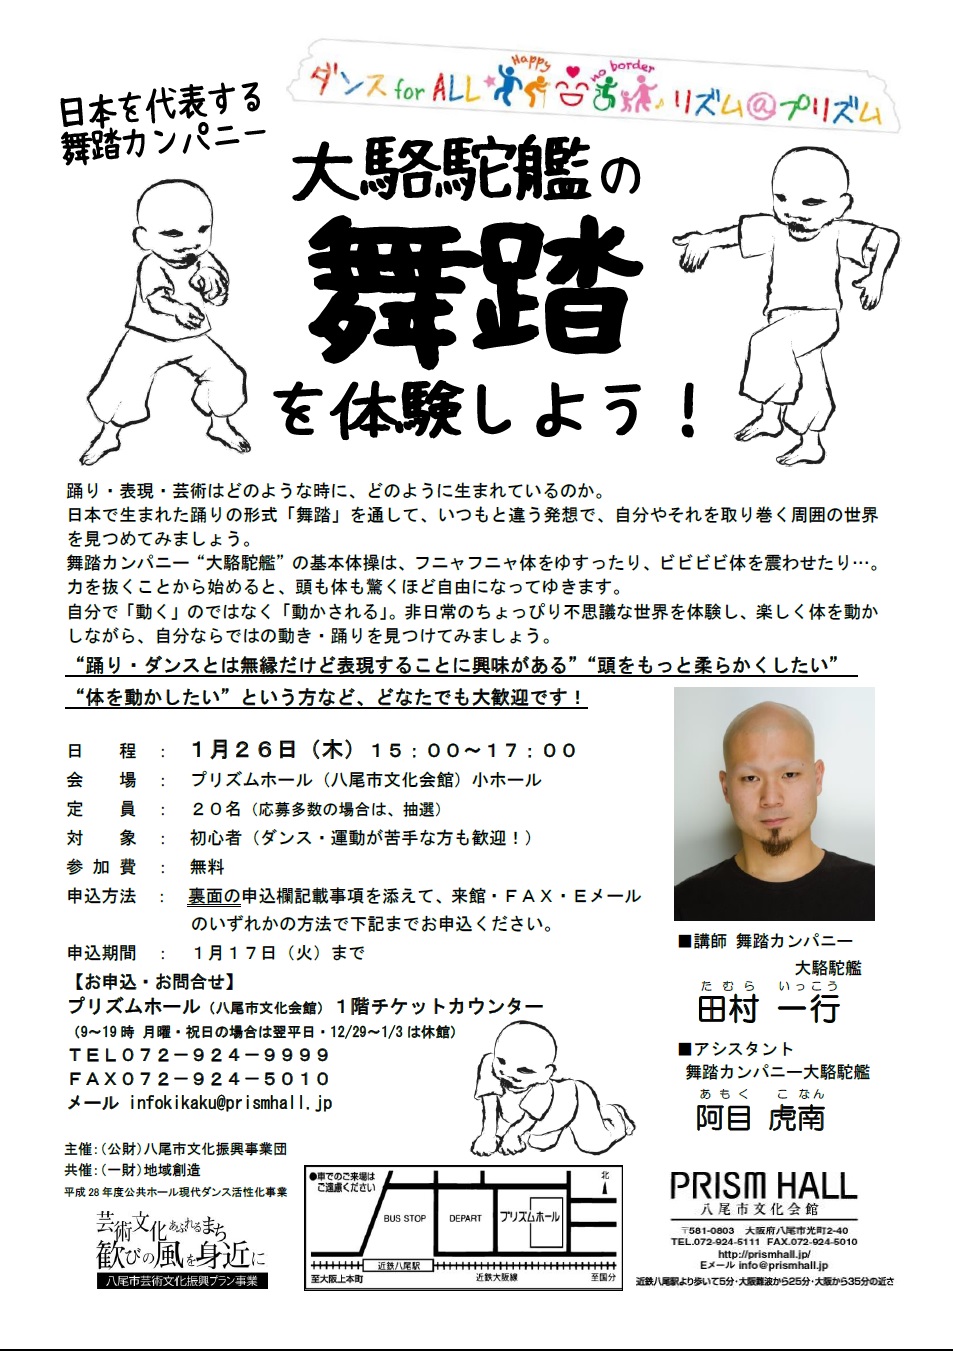 ダンス for ALL Happy no border リズム@プリズム
日本を代表する
舞踏カンパニー
大駱駝艦の
舞踏
を体験しよう！
踊り・表現・芸術はどのような時に、どのように生まれているのか。
日本で生まれた踊りの形式「舞踏」を通して、いつもと違う発想で、自分やそれを取り巻く周囲の世界
を見つめてみましょう。
舞踏カンパニー“大駱駝艦”の基本体操は、フニャフニャ体をゆすったり、ビビビビ体を震わせたり…。
力を抜くことから始めると、頭も体も驚くほど自由になってゆきます。
自分で「動く」のではなく「動かされる」。非日常のちょっぴり不思議な世界を体験し、楽しく体を動か
しながら、自分ならではの動き・踊りを見つけてみましょう。
“踊り・ダンスとは無縁だけど表現することに興味がある”“頭をもっと柔らかくしたい”
“体を動かしたい”という方など、どなたでも大歓迎です！
日 程 ： １月２６日（木）１５：００～１７：００
会 場 ： プリズムホール（八尾市文化会館）小ホール
定 員 ： ２０名（応募多数の場合は、抽選）
対 象 ： 初心者（ダンス・運動が苦手な方も歓迎！）
参 加 費 ： 無料
申込方法 ： 裏面の申込欄記載事項を添えて、来館・ＦＡＸ・Ｅメール
のいずれかの方法で下記までお申込ください。
申込期間 ： １月１７日（火）まで
【お申込・お問合せ】
プリズムホール（八尾市文化会館）１階チケットカウンター
（9～19 時 月曜・祝日の場合は翌平日・12/29～1/3 は休館）
ＴＥＬ０７２－９２４－９９９９
ＦＡＸ０７２－９２４－５０１０
メール infokikaku@prismhall.jp
■講師 舞踏カンパニー
大駱駝艦
たむら いっこう
田村 一行
■アシスタント
舞踏カンパニー大駱駝艦
あもく こなん
阿目 虎南
主催：（公財）八尾市文化振興事業団
共催：（一財）地域創造
平成 28 年度公共ホール現代ダンス活性化事業
芸術文化あふれるまち
歓びの風を身近に
八尾市芸術文化振興プラン事業
●車でのご来場は
ご遠慮ください
北
BUS STOP
DEPART
プリズムホール
近鉄八尾駅
至大阪上本町
近鉄大阪線
至国分
PRISM HALL
八尾市文化会館
〒581-0803 大阪府八尾市光町2-40
TEL.072-924-5111 FAX.072-924-5010
http://prismhall.jp/
Eメール info@prismhall.jp
近鉄八尾駅より歩いて5分・大阪難波から25分・大阪から35分の近さ